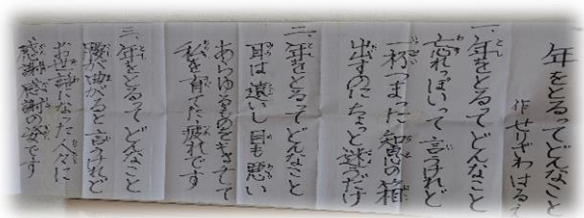 年をとるってどんなこと
作 せりざわはる
一、年をとるってどんなこと
忘れっぽいって言うけれど
一杯つまった知恵の箱
出すのにちょっと迷うだけ
二、年をとるってどんなこと
耳は遠いし目も悪い
あらゆるものをきかせて
私を育てた疲れです
三、年をとるってどんなこと
腰が曲がると言うけれど
お世話になった人々に
感謝感謝の姿です